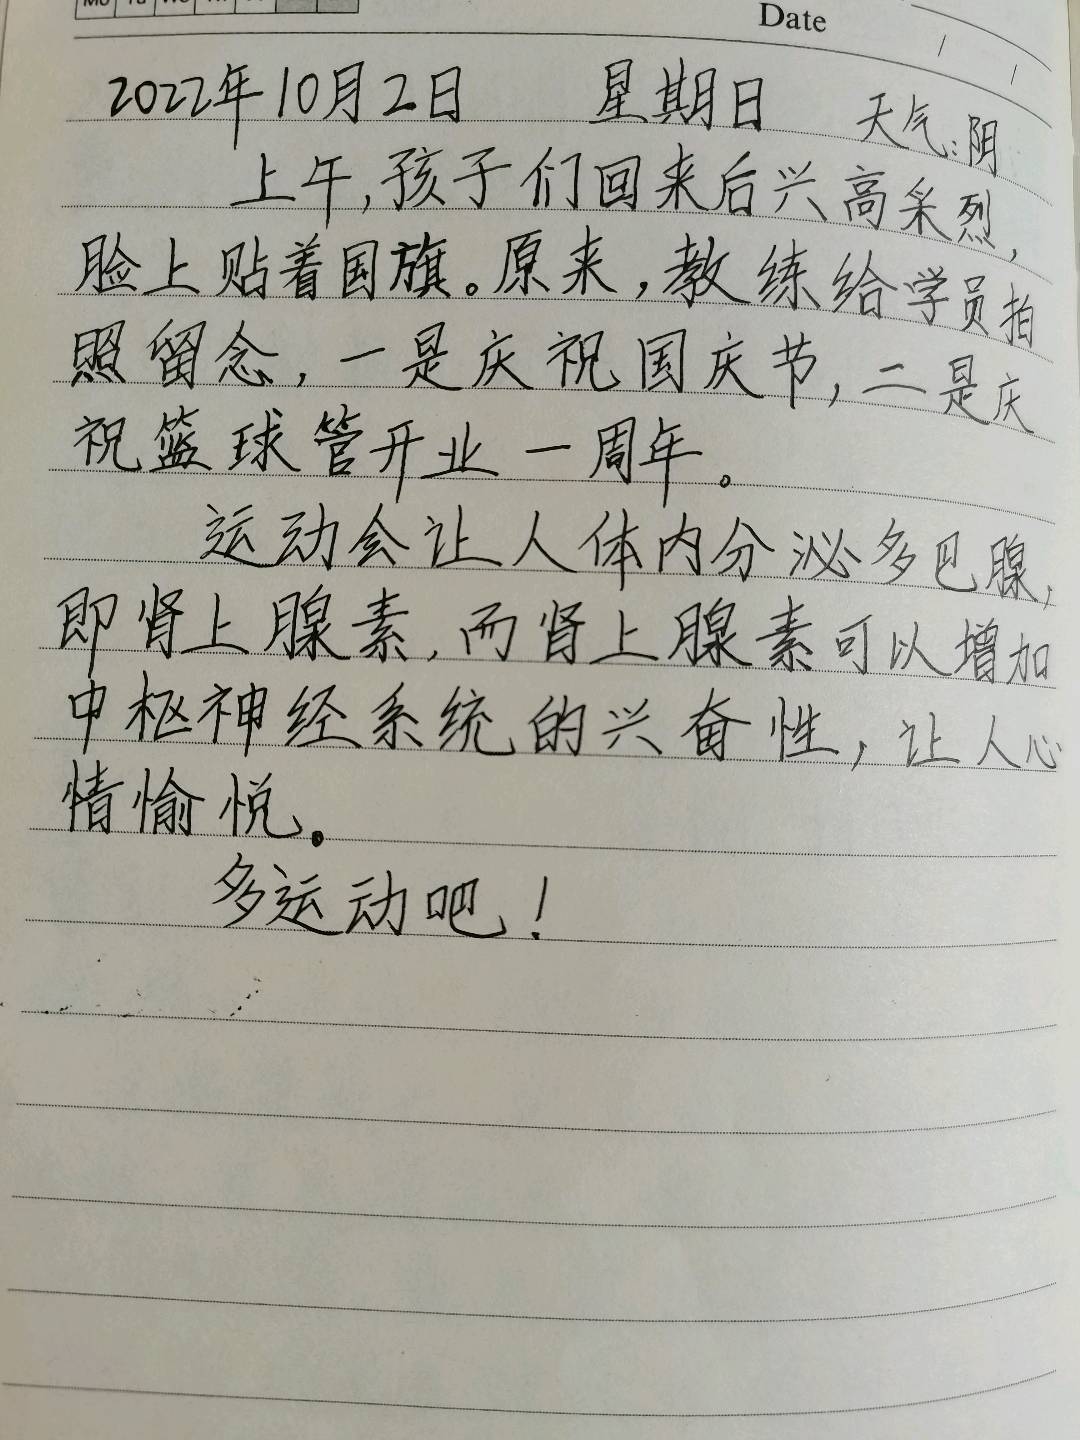 Date
2022年10月2日 星期日 天气:阴
上午,孩子们回来后兴高采烈,
脸上贴着国旗。原来,教练给学员拍
照留念,一是庆祝国庆节,二是庆
祝篮球管开业一周年。
运动会让人体内分泌多巴腺,
即肾上腺素,而肾上腺素可以增加
中枢神经系统的兴奋性,让人心
情愉悦。
多运动吧!